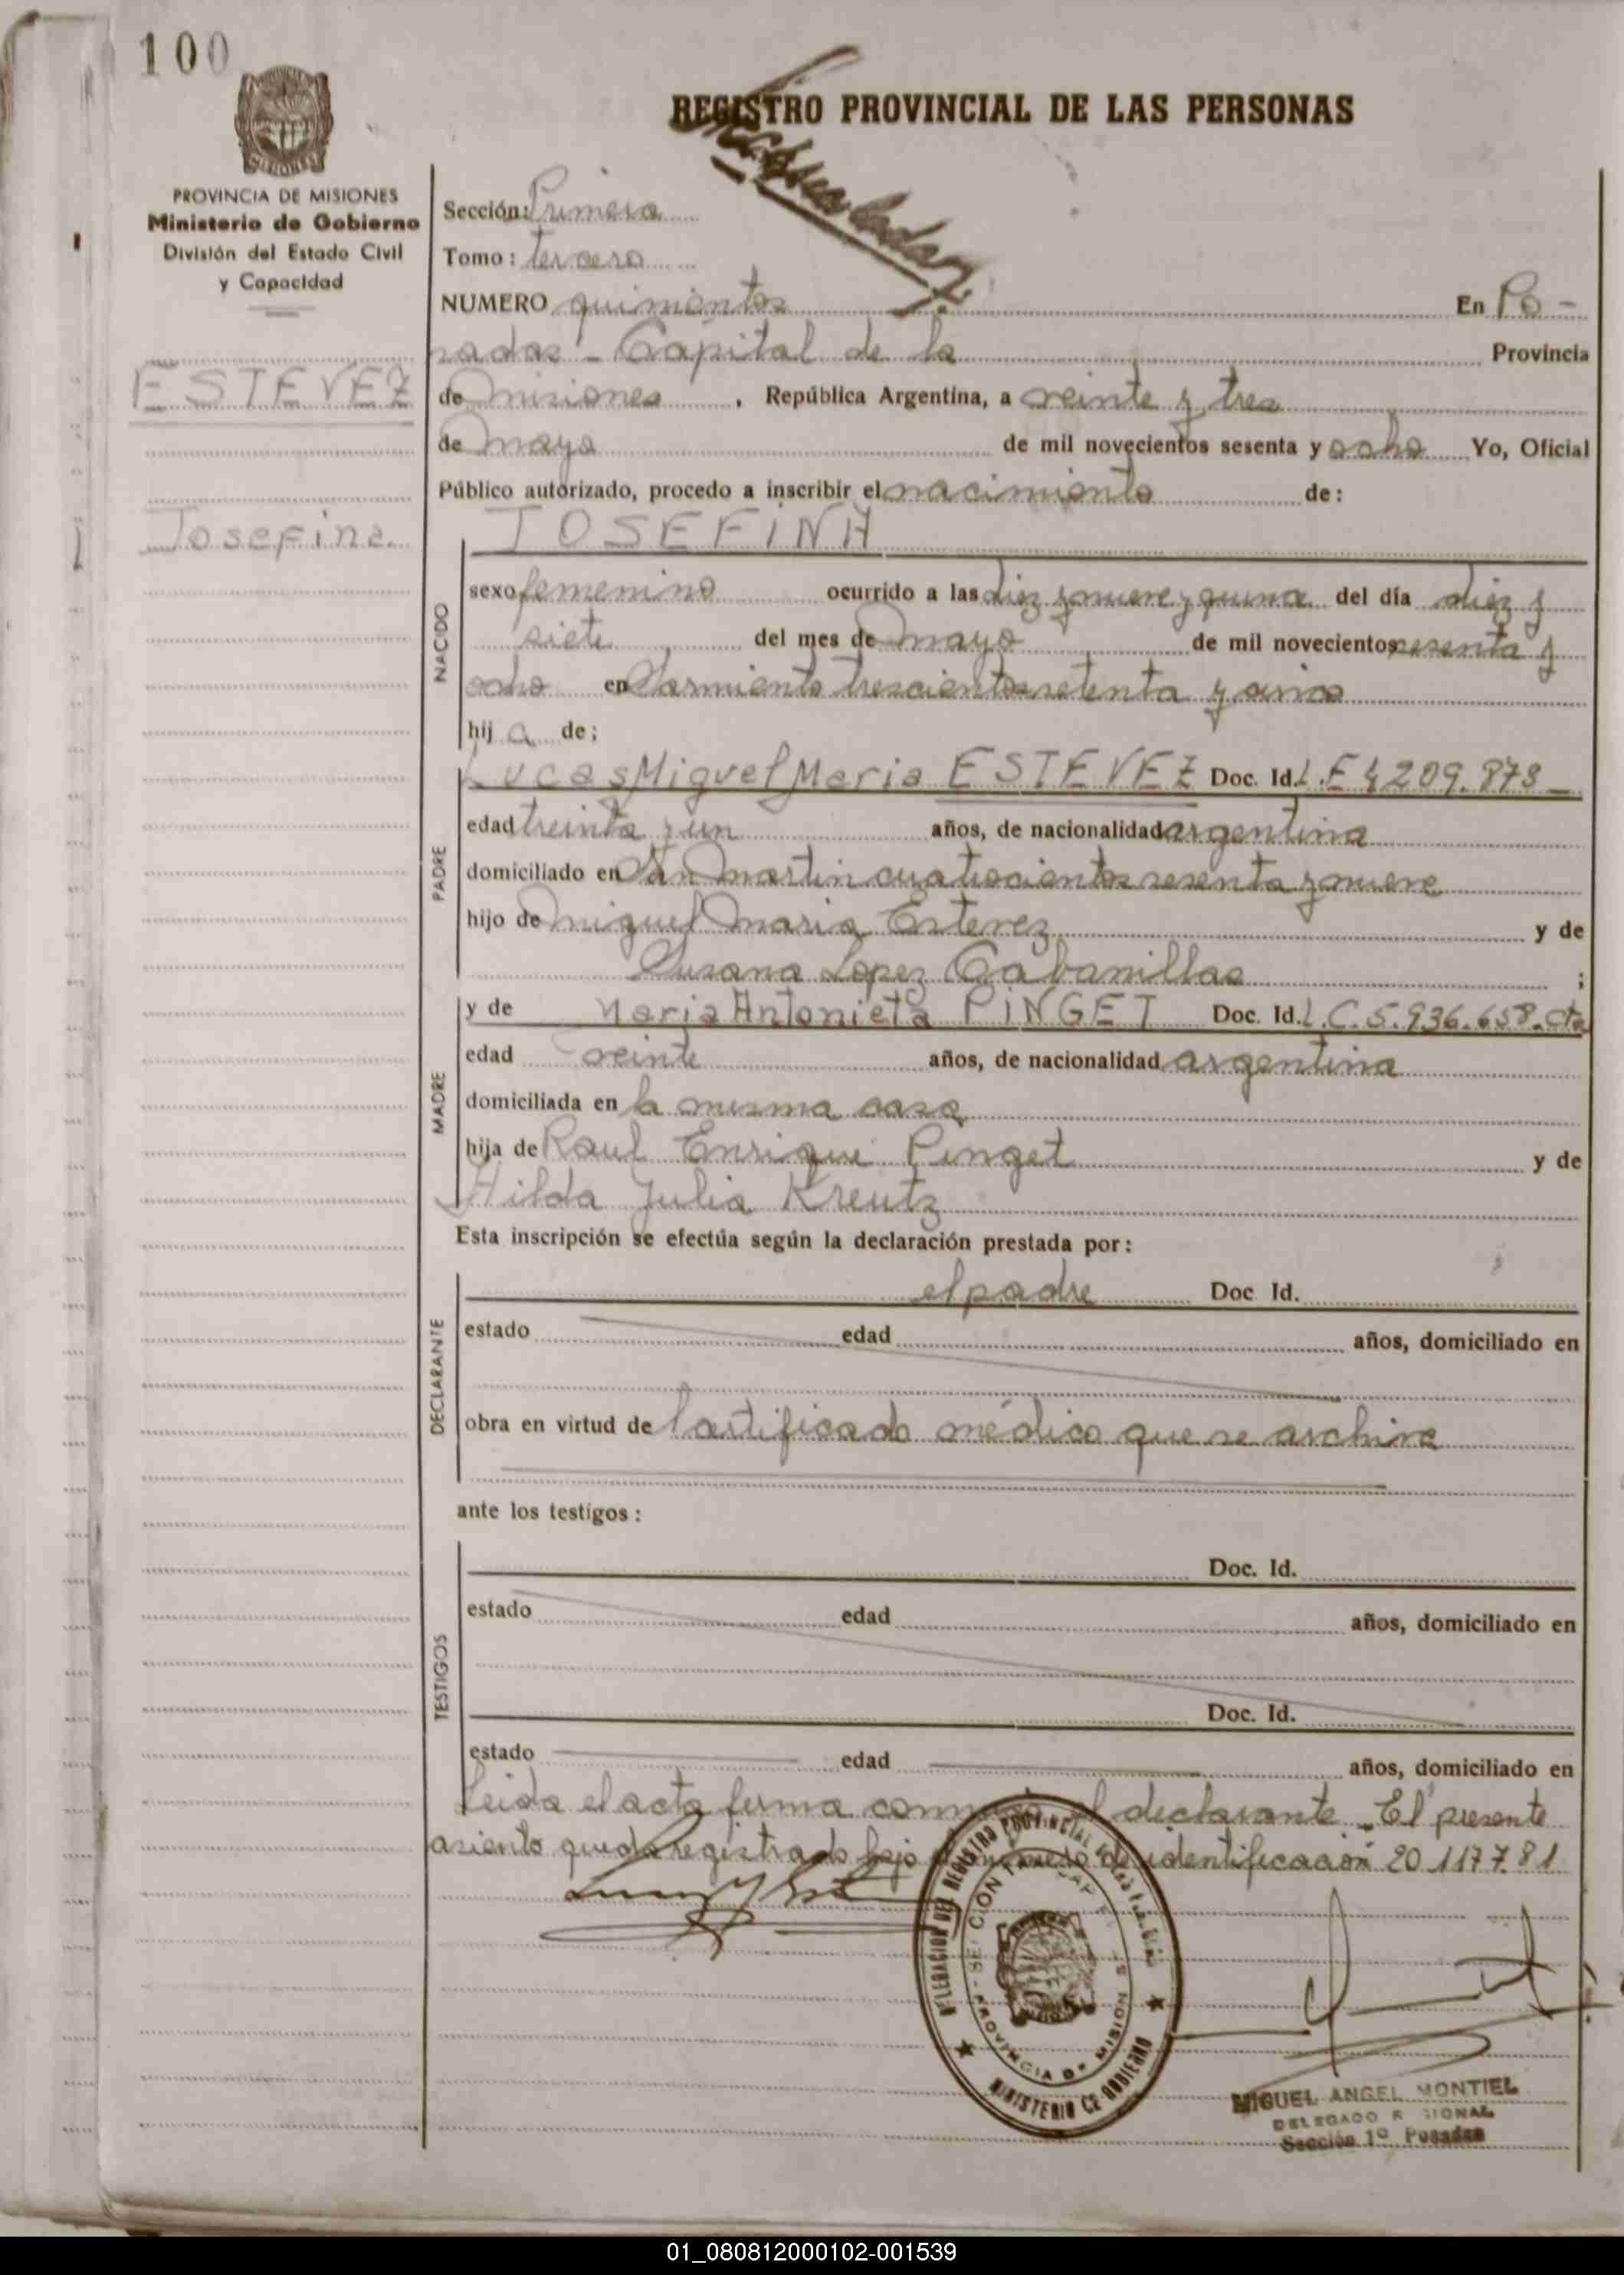 100
REGISTRO PROVINCIAL DE LAS PERSONAS
PROVINCIA DE MISIONES
Ministerio de Gobierno
División del Estado Civil
y Capacidad
ESTEVEZ
Josefina
Sección: Primera
Tomo: tercero
NUMERO quinientos En Po-
sadas - Capital de la Provincia
de Misiones, República Argentina, a veinte y tres
de mayo de mil novecientos sesenta y ocho Yo, Oficial
Público autorizado, procedo a inscribir el nacimiento de:
JOSEFINA
NACIDO
sexo femenino ocurrido a las diez y nueve y quince del día diez y
siete del mes de mayo de mil novecientos sesenta y
ocho en Sarmiento trescientos setenta y cinco
hija de;
PADRE
Lucas Miguel Maria ESTEVEZ Doc. Id. L.E 4209.878
edad treinta y un años, de nacionalidad argentina
domiciliado en San Martin cuatrocientos sesenta y nueve
hijo de Miguel Maria Estevez y de
Susana Lopez Cabanillas ;
MADRE
y de Maria Antonieta PINGET Doc. Id. L.C.5.936.658.Cte
edad veinte años, de nacionalidad argentina
domiciliada en la misma casa
hija de Raul Enrique Pinget y de
Hilda Julia Kreutz
Esta inscripción se efectúa según la declaración prestada por:
DECLARANTE
el padre Doc Id.
estado edad años, domiciliado en
obra en virtud de Certificado médico que se archiva
ante los testigos:
TESTIGOS
Doc. Id.
estado edad años, domiciliado en
Doc. Id.
estado edad años, domiciliado en
Leida el acta firma conmigo el declarante. El presente
asiento queda registrado bajo numero de identificación 20.117.781
PROVINCIA DE MISIONES
MINISTERIO DE GOBIERNO
MIGUEL ANGEL MONTIEL
DELEGADO
Sección 1º Posadas
01_080812000102-001539